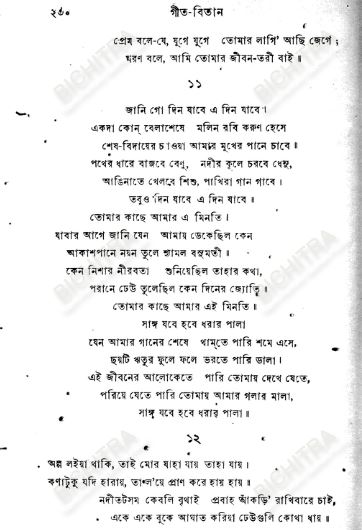 ২৫০ গীত-বিতান
প্রেম বলে-যে, যুগে যুগে তোমার লাগি' আছি জেগে ;
মরণ বলে, আমি তোমার জীবন-তরী বাই ॥
১১
জানি গো দিন যাবে এ দিন যাবে।
একদা কোন্ বেলাশেষে মলিন রবি করুণ হেসে
শেষ-বিদায়ের চাওয়া আমার মুখের পানে চাবে ॥
পথের ধারে বাজবে বেণু, নদীর কূলে চরবে ধেনু,
আঙিনাতে খেলবে শিশু, পাখিরা গান গাবে।
তবুও দিন যাবে এ দিন যাবে ॥
তোমার কাছে আমার এ মিনতি।
যাবার আগে জানি যেন আমায় ডেকেছিল কেন
আকাশপানে নয়ন তুলে শ্যামল বসুমতী ॥
কেন নিশার নীরবতা শুনিয়েছিল তাহার কথা,
পরানে ঢেউ তুলেছিল কেন দিনের জ্যোতি ॥
তোমার কাছে আমার এই মিনতি ॥
সাঙ্গ যবে হবে ধরার পালা
যেন আমার গানের শেষে থামতে পারি শমে এসে,
ছয়টি ঋতুর ফুলে ফলে ভরতে পারি ডালা।
এই জীবনের আলোকেতে পারি তোমায় দেখে যেতে,
পরিয়ে যেতে পারি তোমায় আমার গলার মালা,
সাঙ্গ যবে হবে ধরার পালা ॥
১২
অল্প লইয়া থাকি, তাই মোর যাহা যায় তাহা যায়।
কণাটুকু যদি হারায়, তা ল'য়ে প্রাণ করে হায় হায় ॥
নদীতটসম কেবলি বৃথাই প্রবাহ আঁকড়ি' রাখিবারে চাই,
একে একে বুকে আঘাত করিয়া ঢেউগুলি কোথা ধায় ॥
BICHITRA